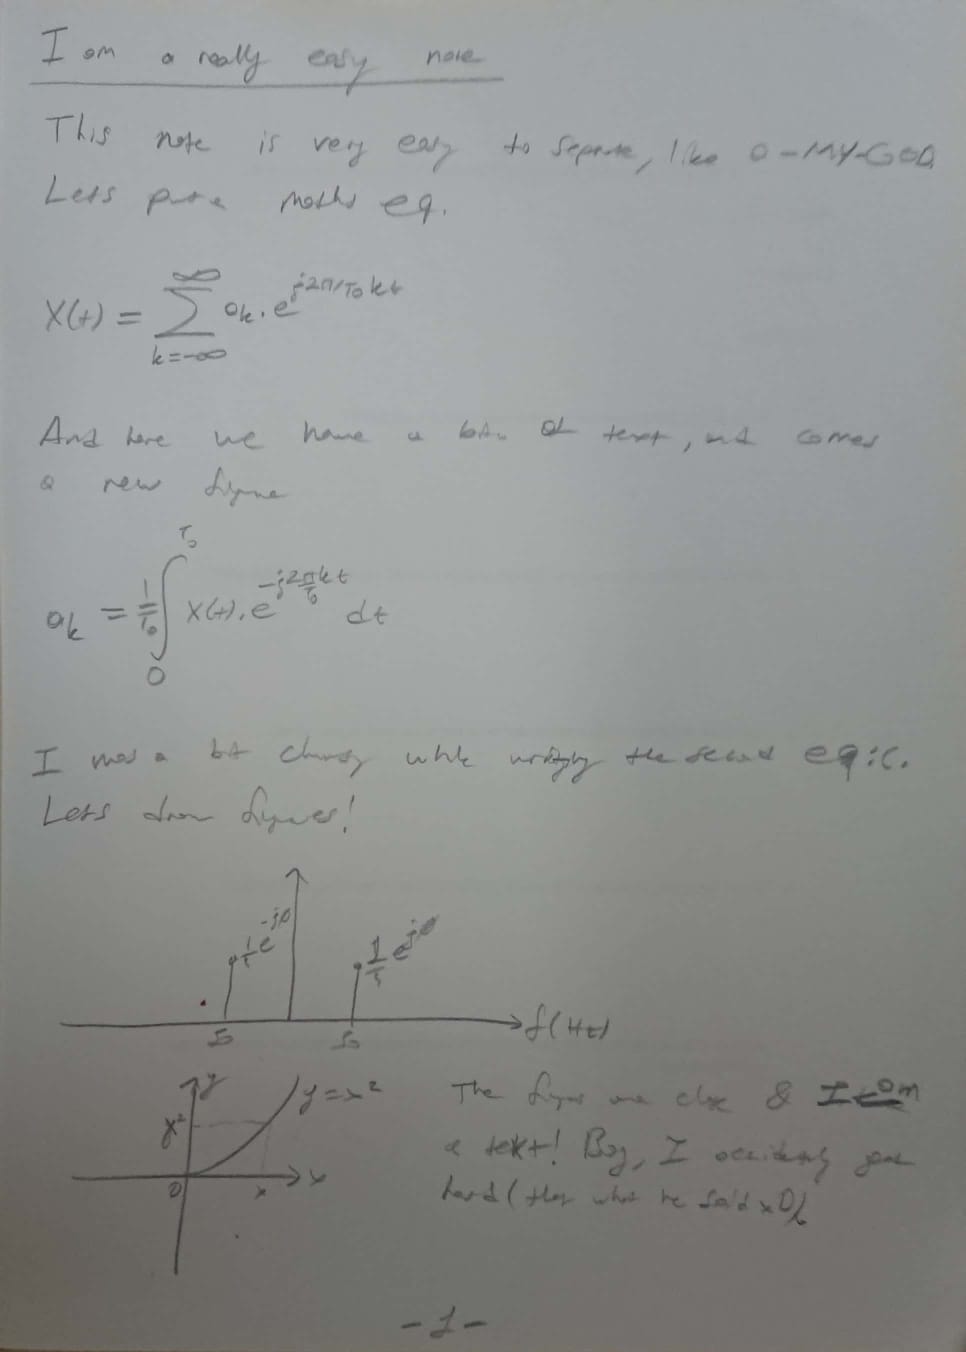 I am a really easy note
This note is very easy to separate, like O-MY-GOD.
Lets put a maths eq.
X(t) = ∑ k=-∞ ∞ ak . e^(j2π/T0 kt)
And here we have a bit of text, and comes
a new figure
ak = 1/T0 ∫ 0 T0 X(t) . e^(-j2πkt/T0) dt
I was a bit clumsy while writing the second eq:c.
Lets draw figures!
e^(-jø) e^(jø)
f(Hz)
y y=x² The figures are close & I am
x² a text! Boy, I accidently gone
0 x x hard (thats what he said xD)
-1-